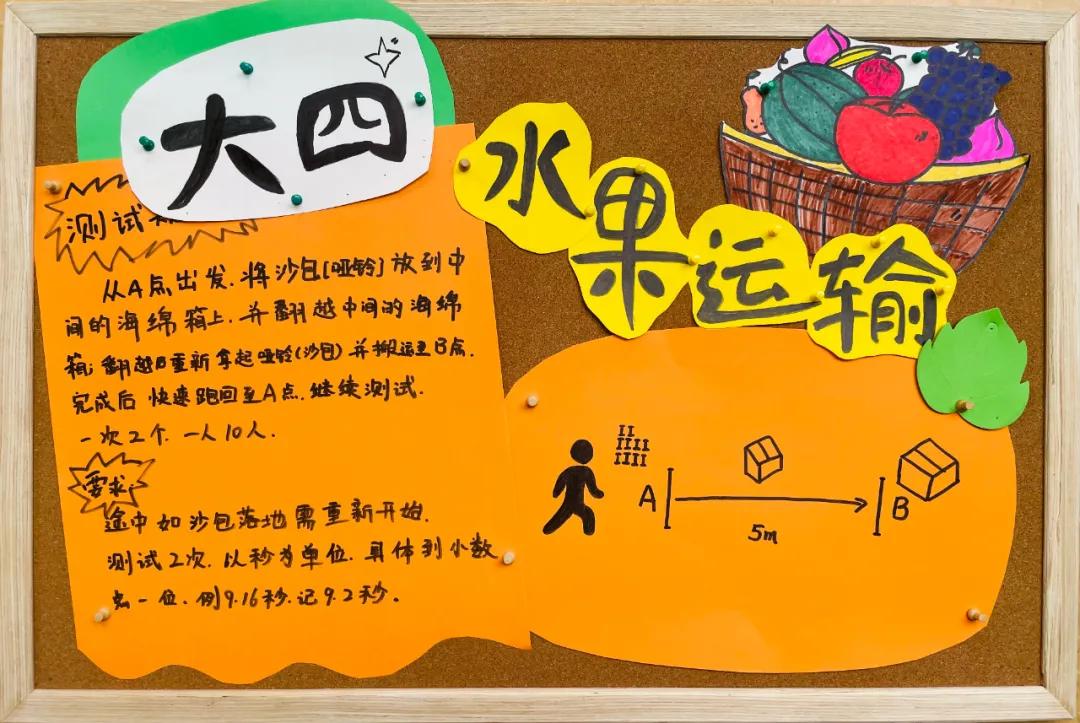 大四
水果运输
测试
从A点出发.将沙包[哑铃]放到中
间的海绵箱上.并翻越中间的海绵
箱;翻越后重新拿起哑铃(沙包)并搬运至B点.
完成后 快速跑回至A点.继续测试.
一次2个.一人10人.
要求:
途中如沙包落地需重新开始.
测试2次.以秒为单位.具体到小数
点一位.例9.16秒.记9.2秒。
A
B
5m